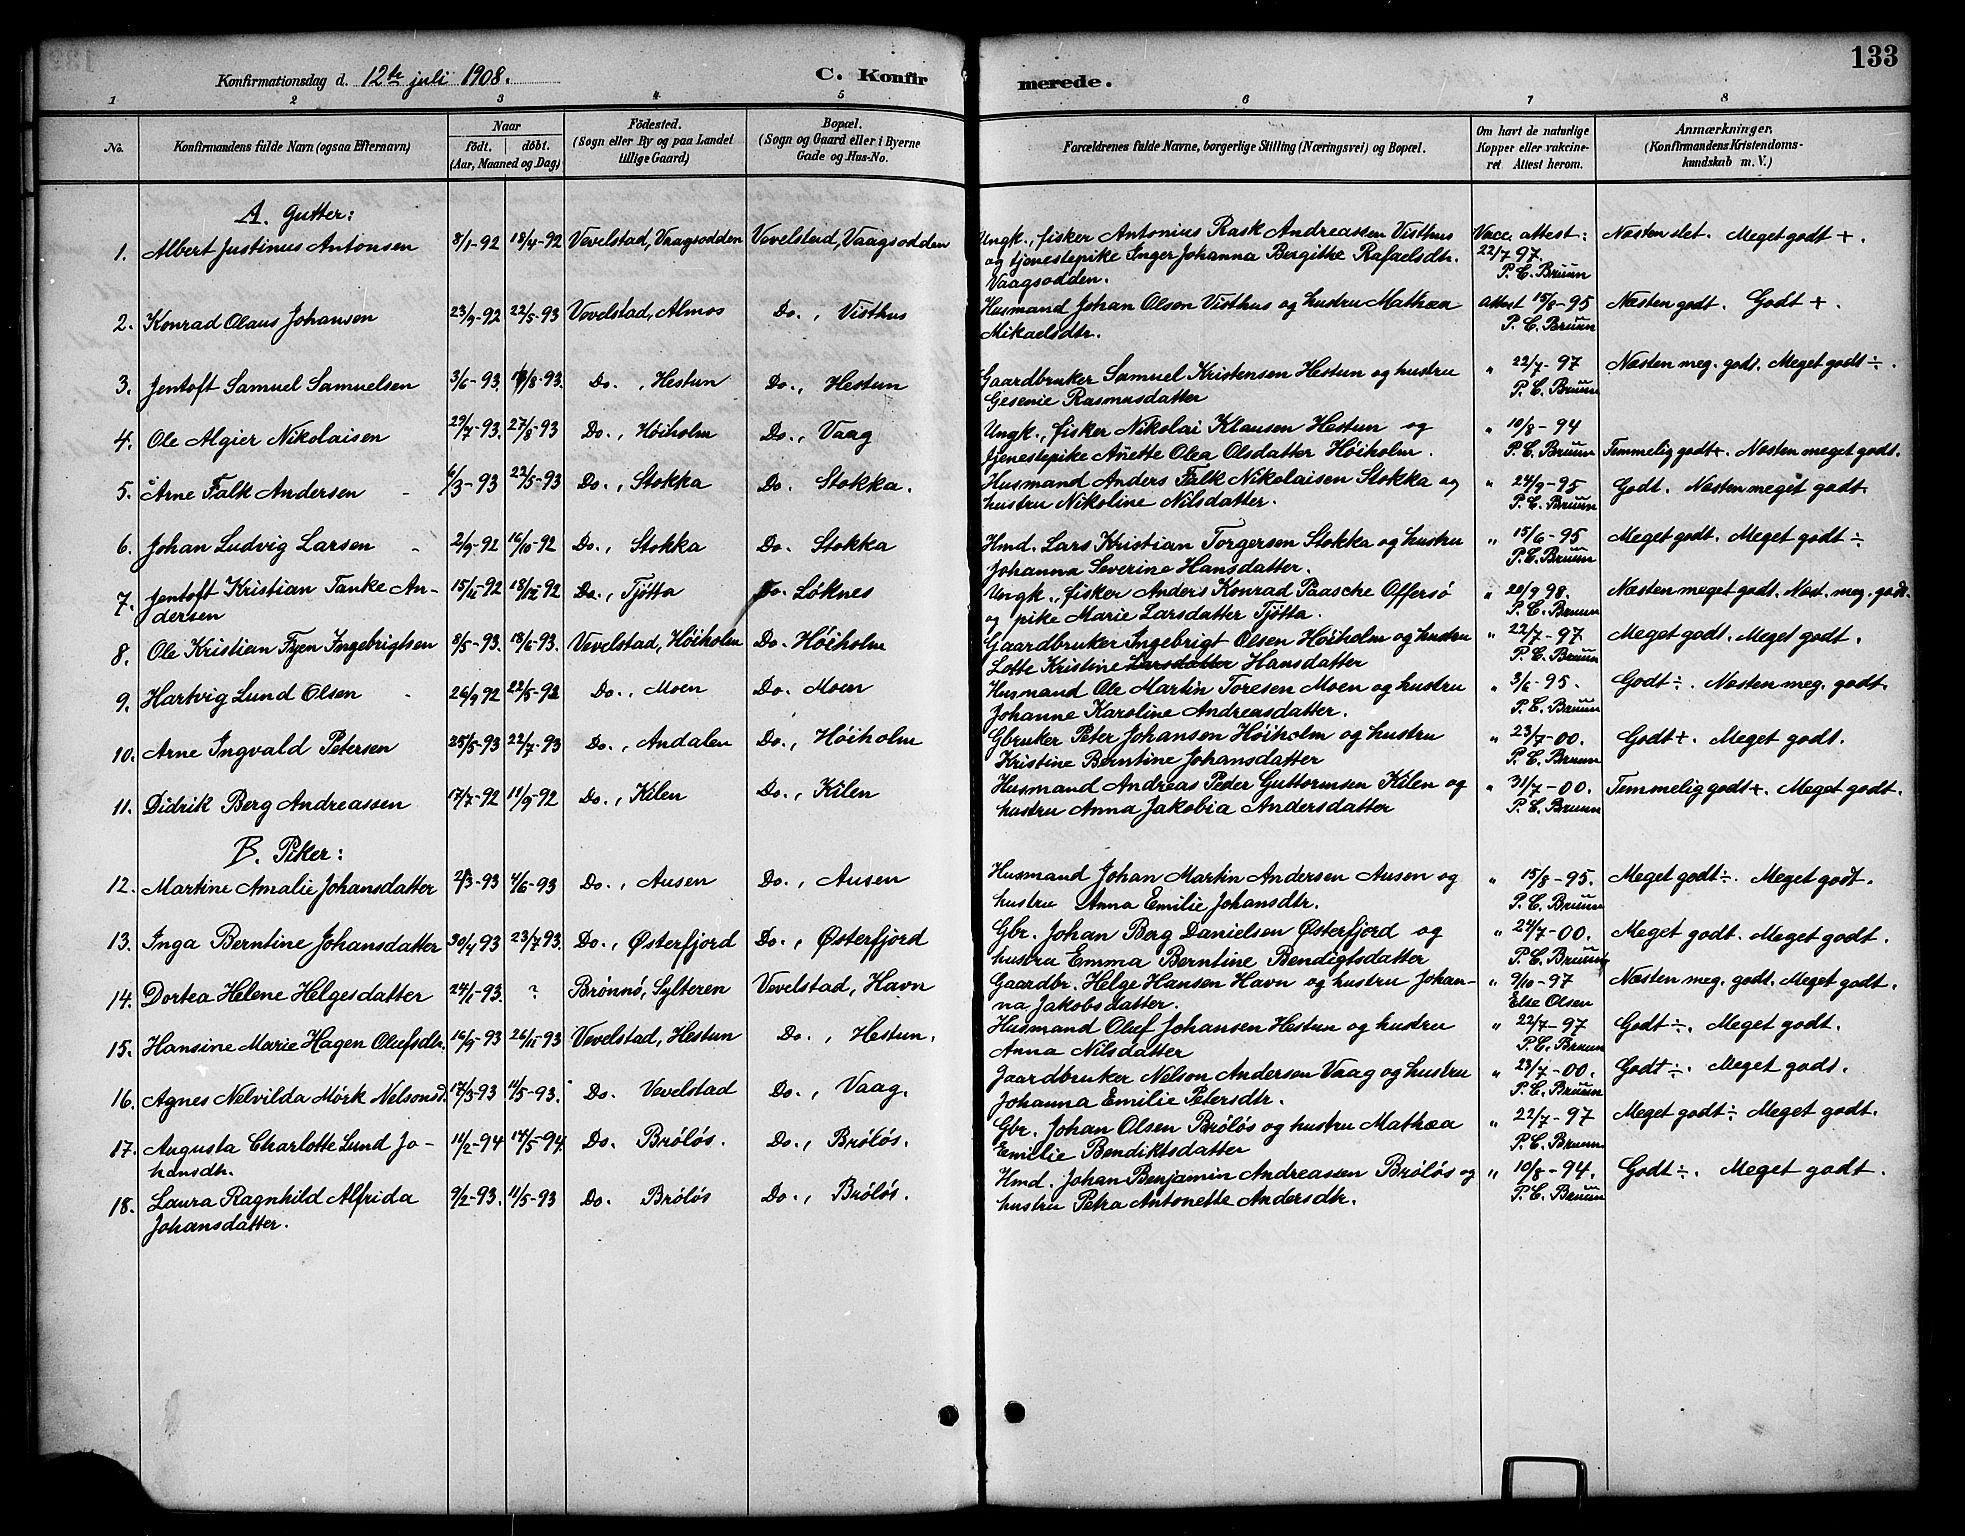 133
Konfirmationsdag d. 12te juli 1908.
C. Konfir merede.
1 2 3 4 5 6 7 8
No.
Konfirmandens fulde Navn (ogsaa Efternavn)
Naar
födt. döbt.
(Aar, Maaned og Dag)
Födested.
(Sogn eller By og paa Landet
tillige Gaard)
Bopæl.
(Sogn og Gaard eller i Byerne
Gade og Hus-No.
Forældrenes fulde Navne, borgerlige Stilling (Næringsvei) og Bopæl.
Om havt de naturlige
Kopper eller vakcine-
ret Attest herom.
Anmærkninger.
(Konfirmandens Kristendoms-
kundskab m. V.)
A. Gutter:
1. Albert Justinus Antonsen 8/1-92 18/4-92 Vevelstad, Vaagsodden Vevelstad, Vaagsodden Ungk., fisker Antonius Rask Andreassen Visthus Vacc. attest: Næsten slet. Meget godt +.
og tjenestepike Inger Johanna Bergitke Rafaelsdtr. 22/7 97.
Vaagsodden. P. C. Bruun
2. Konrad Olaus Johansen 23/9-92 22/5-93 Vevelstad, Almos Do., Visthus Husmand Johan Olsen Visthus og hustru Mathæa attest 15/8-95 Næsten godt. Godt +.
Mikaelsdtr. P. C. Bruun
3. Jentoft Samuel Samuelsen 3/6-93. /8-93. Do., Hestun Do., Hestun Gaardbruker Samuel Kristensen Hestun og hustru " 22/7-97 Næsten meg. godt. Meget godt ÷.
Gesenie Rasmusdatter P. C. Bruun
4. Ole Algier Nikolaisen 29/7-93. 27/8-93 Do., Höiholm Do., Vaag Ungk., fisker Nikolai Klausen Hestun og " 10/8-94
tjenestepike Anette Olea Olsdatter Höiholm. P. C. Bruun Temmelig godt +. Næsten meget godt.
5. Arne Falk Andersen 6/3-93 22/5-93 Do., Stokka Do. Stokka. Husmand Anders Falk Nikolaisen Stokka og " 24/9-95 Godt. Næsten meget godt.
hustru Nikoline Nilsdatter. P. C. Bruun
6. Johan Ludvig Larsen 2/9-92 16/10-92 Do., Stokka Do. Stokka Hmd. Lars Kristian Torgersen Stokka og hustru " 15/6-95 Meget godt. Meget godt ÷
Johanna Severine Hansdatter. P. C. Bruun
7. Jentoft Kristian Tanke An- 15/11-92 18/12-92 Do., Tjötta Do. Löknes Ungk., fisker Anders Konrad Paasche Offersö " 20/9 98. Næsten meget godt. Næst. meg. godt.
dersen og pike Marie Larsdatter Tjötta. P. C. Bruun
8. Ole Kristian Fyen Ingebrigtsen 8/5-93. 18/6-93. Vevelstad, Höiholm Do. Höiholm Gaardbruker Ingebrigt Olsen Höiholm og hustru " 22/7-97 Meget godt. Meget godt.
Lotte Kristine Larsdatter Hansdatter P. C. Bruun
9. Hartvig Lund Olsen 26/9 92 22/5-93 Do., Moen Do. Moen Husmand Ole Martin Toresen Moen og hustru " 3/6-95. Godt ÷. Næsten meg. godt.
Johanne Karoline Andreasdatter. P. C. Bruun
10. Arne Ingvald Petersen 25/5-93 22/7-93 Do., Andalen Do., Höiholm Gbruker Peter Johansen Höiholm og hustru " 23/7-00. Godt +. Meget godt.
Kristine Berntine Johansdatter P. C. Bruun
11. Didrik Berg Andreassen 17/7-92 11/9-92 Do., Kilen Do., Kilen Husmand Andreas Peder Guttormsen Kilen og " 31/7-00. Temmelig godt +. Meget godt.
hustru Anna Jakobia Andersdatter P. C. Bruun
B. Piker:
12. Martine Amalie Johansdatter 2/3-93 4/6-93 Do., Ausen Do., Ausen Husmand Johan Martin Andersen Ausen og " 15/8-95. Meget godt ÷. Meget godt.
hustru Anna Emilie Johansdtr. P. C. Bruun
13. Inga Berntine Johansdatter 30/4 93 23/7 93. Do., Østerfjord Do., Østerfjord Gbr. Johan Berg Danielsen Østerfjord og " 24/7-00. Meget godt. Meget godt.
hustru Emma Berntine Bendigtsdatter P. C. Bruun
14. Dortea Helene Helgesdatter 24/1-93. ? Brönnö, Sylteren Vevelstad, Havn Gaardbr. Helge Hansen Havn og hustru Johan- " 9/10-97 Næsten meg. godt. Meget godt.
na Jakobsdatter. Else Olsen
15. Hansine Marie Hagen Olufsdtr. 16/9-93 26/11-93 Vevelstad, Hestun Do., Hestun. Husmand Oluf Johansen Hestun og hustru " 22/7-97 Godt ÷. Meget godt.
Anna Nilsdatter P. C. Bruun
16. Agnes Nelvilda Mörk Nelsonsd. 17/3-93 11/5-93. Do. Vevelstad Do., Vaag. Gaardbruker Nelson Andersen Vaag og hustru " 23/7-00. Godt ÷. Meget godt.
Johanna Emilie Petersdtr. P. C. Bruun
17. Augusta Charlotte Lund Jo- 11/2-94 14/5-94. Do. Brölös. Do., Brölös. Gbr. Johan Olsen Brölös og hustru Mathæa " 22/7-97 Meget godt ÷ Meget godt.
hansdtr. Emilie Bendiktsdatter P. C. Bruun
18. Laura Ragnhild Alfrida 9/2-93. 11/5-93 Do. Brölös Do., Brölös. Hmd. Johan Benjamin Andreassen Brölös og " 10/8-94. Godt ÷. Meget godt.
Johansdatter. hustru Petra Antonette Andersdtr. P. C. Bruun